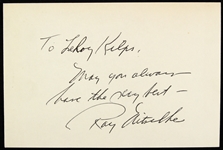 To LeRoy Kelps,
May you always
have the very best –
Ray Nitschke